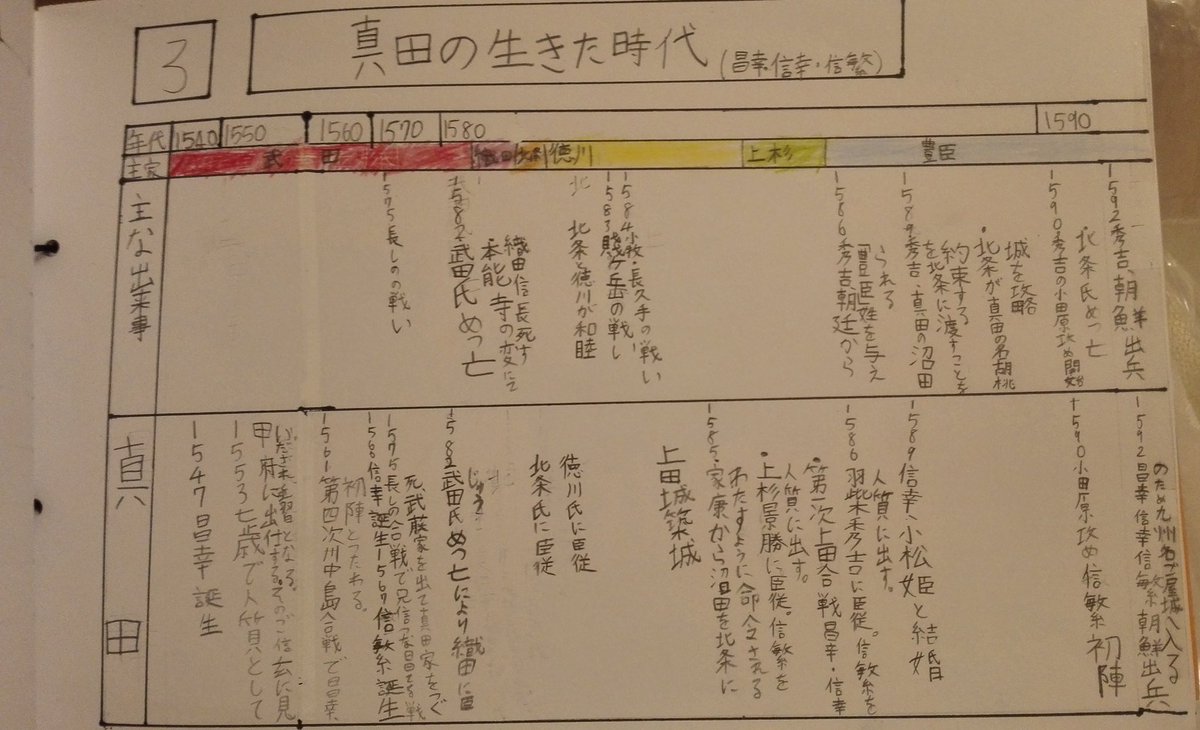 3
真田の生きた時代(昌幸・信幸・信繁)
年代 1540 1550 1560 1570 1580 1590
主家 武田 織田 北条 徳川 上杉 豊臣
主な出来事
1575長しのの戦い
1582武田氏めつ亡
・本能寺の変にて
織田信長死す
北条と徳川が和睦
1583賤ヶ岳の戦い
1584小牧・長久手の戦い
1586秀吉朝廷から
「豊臣姓を与え
られる
1589秀吉、真田の沼田
を北条に渡すことを
約束する
・北条が真田の名胡桃
城を攻略
1590秀吉の小田原攻め開始
・北条氏めつ亡
1592秀吉、朝鮮出兵
真田
1547昌幸誕生
1553七歳で人質として
甲府に出仕する。そのご信玄に見
いだされ近習となる。
1561第四次川中島合戦で昌幸
初陣とつたわる。
1566信幸誕生1567信繁誕生
1575長しの合戦で兄信つな昌てる戦
死武藤家を出て真田家をつぐ
1582武田氏めつ亡により織田に臣
じゅう
北条氏に臣従
徳川氏に臣従
上田城築城
1585・家康から沼田を北条に
わたすように命令される
・上杉景勝に臣従。信繁を
人質に出す。
・第一次上田合戦昌幸・信幸
1586羽柴秀吉に臣従。信繁を
人質に出す。
1589信幸、小松姫と結婚
1590小田原攻め信繁初陣
1592昌幸信幸信繁朝鮮出兵
のため九州名ゴ屋城へ入る